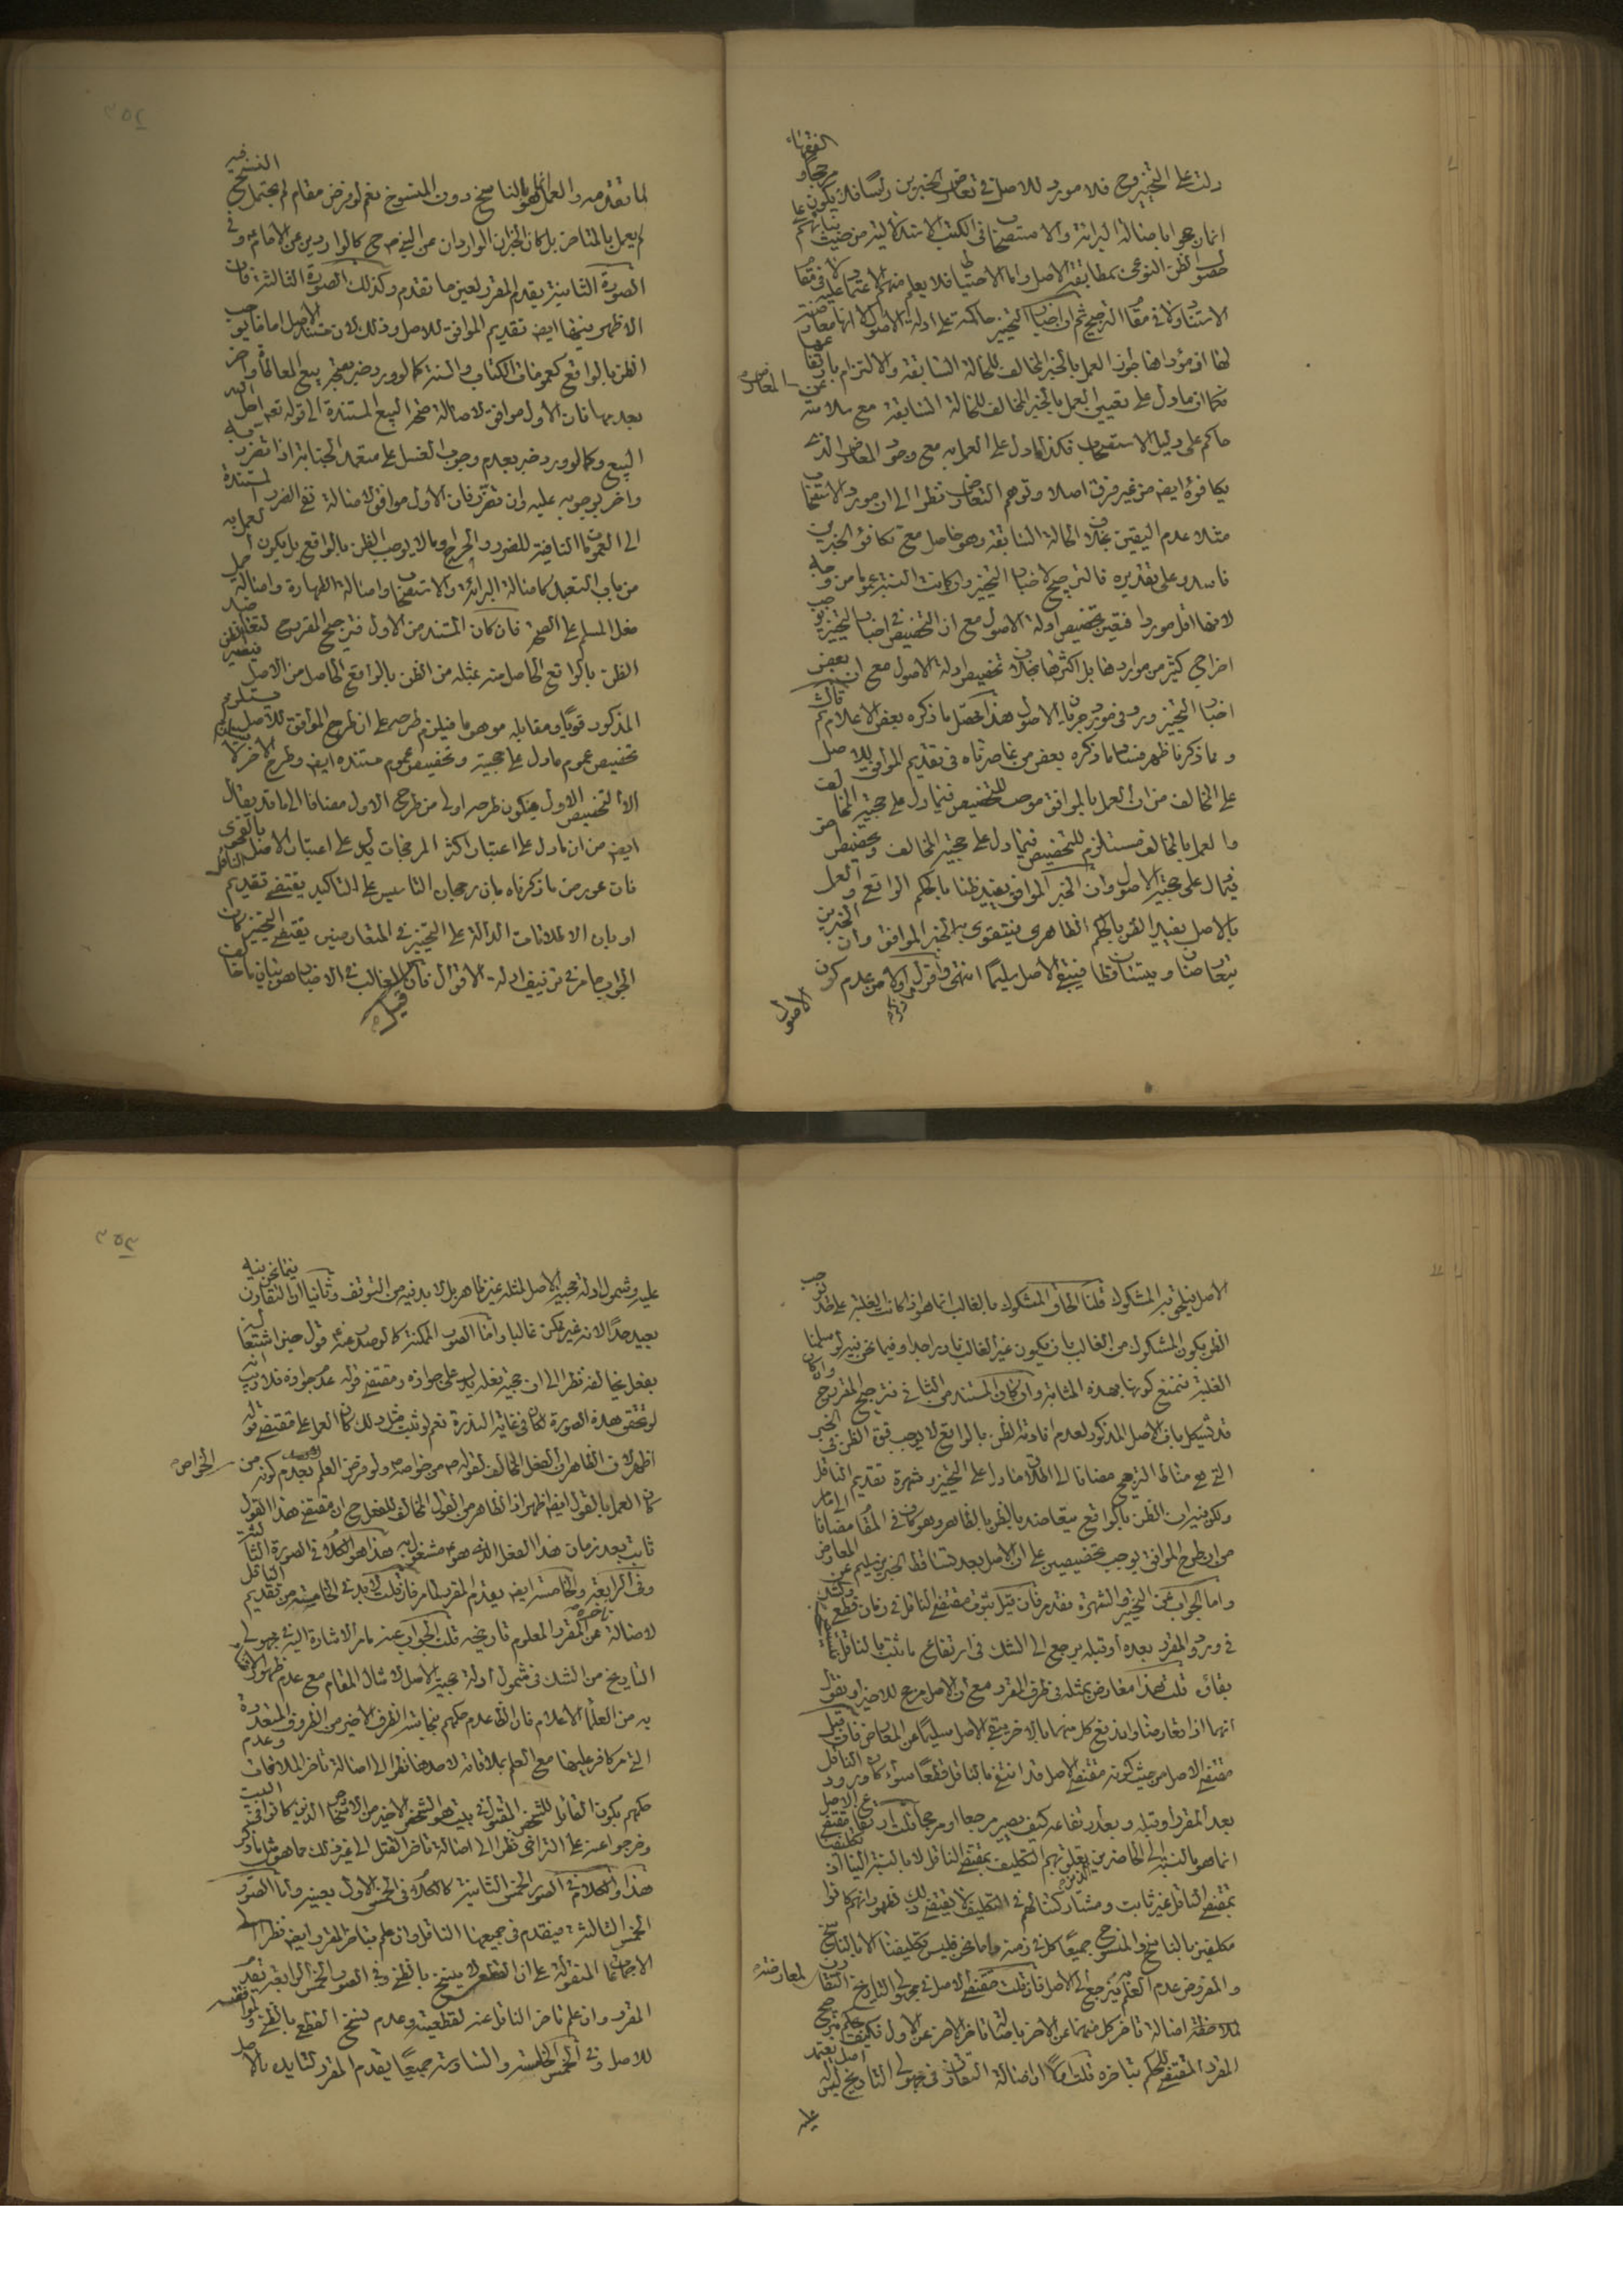 دلت على التخيير فلا مورد للاصل في تعارض الخبرين رأسا فلا يكون مرجحا والفقهاء
انما رجحوا باصالة البرائة والاستصحاب في الكتب الاستدلالية من حيث بنائهم على
حصول الظن النوعي بمطابقة الاصل واما الاحتياط فلا يعلم منهم الاعتماد عليه لا في مقام
الاستناد ولا في مقام الترجيح ثم ان اخبار التخيير حاكمة على ادلة الاصول لا انها معارضة
لها اذ مؤداها جواز العمل بالخبر المخالف للحالة السابقة والالتزام بارتفاعها
فكما ان ما دل على تعيين العمل بالخبر المخالف للحالة السابقة مع سلامته عن المعارض
حاكم على دليل الاستصحاب فكذا ما دل على العمل به مع وجود المعارض الذي
يكافؤه ايضا من غير فرق اصلا وتوهم التعارض نظرا الى ان مورد الاستصحاب
مثلا عدم اليقين بخلاف الحالة السابقة وهو حاصل مع تكافؤ الخبرين
فاسد وعلى تقديره فالترجيح لاخبار التخيير وان كانت النسبة عموما من وجه
لانها اقل موردا فتعين تخصيص ادلة الاصول مع ان التخصيص في اخبار التخيير يوجب
اخراج كثير من مواردها بل اكثرها بخلاف تخصيص ادلة الاصول مع ان بعض
اخبار التخيير ورد في مورد جريان الاصول هذا محصل ما ذكره بعض الاعلام
ومما ذكرنا ظهر فساد ما ذكره بعض من عاصرناه في تقديم الموافق للاصل
على المخالف من ان العمل بالموافق موجب للتخصيص فيما دل على حجية المخالف
والعمل بالمخالف مستلزم للتخصيص فيما دل على حجية المخالف وتخصيص
فيما دل على حجية الاصول وان الخبر الموافق يفيد ظنا بالحكم الواقعي والعمل
بالاصل يفيد الظن بالحكم الظاهري فيتقوى به الخبر الموافق وان الخبرين
يتعارضان ويتساقطان فيبقى الاصل سليما انتهى واقول اولا من عدم كون
الاصول
لما تقدم والعمل انما هو بالناسخ دون المنسوخ نعم لو فرض مقام لم يحتمل فيه النسخ
لم يعمل بالمتاخر بل كان الخبران الواردان من النبي ص ح كالواردين عن الامام ع وفي
الصورة الثانية يقدم المقرر لعين ما تقدم وكذلك الصورة الثالثة فان
الاظهر فيها ايضا تقديم الموافق للاصل وذلك لان مستند الاصل اما ما يوجب
الظن بالواقع كعمومات الكتاب والسنة كما لو ورد خبر بصحة بيع المعاطاة واخر
بعدمها فان الاول موافق لاصالة صحة البيع المستندة الى قوله تعالى احل الله
البيع وكما لو ورد خبر بعدم وجوب الغسل على متعمد الجنابة اذا تضرر به
واخر بوجوبه عليه وان تضرر فان الاول موافق لاصالة نفي الضرر المستندة
الى العمومات النافية للضرر والحرج وما لا يوجب الظن بالواقع بل يكون العمل به
من باب التعبد كاصالة البرائة والاستصحاب واصالة الطهارة واصالة حمل
فعل المسلم على الصحة فان كان المستند من الاول فترجيح المقرر ح
الظن بالواقع الحاصل منه بمثله من الظن بالواقع الحاصل من الاصل فيصير
المذكور قويا ومقابله موهوما فيلزم طرحه على ان طرح الموافق للاصل يستلزم
تخصيص عموم ما دل على حجيته وتخصيص عموم مستنده ايضا وطرح الاخر لا يستلزم
الا التخصيص الاول فيكون طرحه اولى من طرح الاول مضافا الى ما قد يقال
ايضا من ان ما دل على اعتبار اكثر المرجحات يدل على اعتبار الاصل بالفحوى
فان عورض ما ذكرناه بان رجحان التاسيس على التاكيد يقتضي تقديم الناقل
او بان الاطلاقات الدالة على التخيير في المتعارضين يقتضي التخيير كان
الجواب ما مر في تزييف ادلة الاقوال فان قيل الغالب في الاخبار هو بيان ما خالف
الاصل فيلحق به المشكوك قلنا الحاق المشكوك بالغالب انما هو اذا كانت الغلبة على حد توجب
الظن بكون المشكوك من الغالب بان يكون غير الغالب نادرا جدا وفيما نحن فيه لو سلمنا
الغلبة فنمنع كونها بهذه المثابة وان كان المستند من الثاني فترجيح المقرر ح وان كان
قد يشكل بان الاصل المذكور لعدم افادته الظن بالواقع لا يوجب قوة الظن في الخبر
التي هي مناط الترجيح مضافا الى اطلاق ما دل على التخيير وشهرة تقديم الناقل
ولكن فيه ان الظن بالواقع يتعاضد بالظن بالظاهر وهو كاف في المقام مضافا الى ما مر
من ان طرح الموافق يوجب تخصيصين على ان الاصل بعد تساقط الخبرين سليم عن المعارض
واما الجواب عن التخيير والشهرة فقد مر فان قيل ثبوت مقتضى الناقل في زمان قطعي والشك
في ورود المقرر بعده او قبله يرجع الى الشك في ارتفاع ما ثبت بالناقل
بقائه قلت هذا معارض بمثله في طرف المقرر مع ان الاصل مرجح للاخير او نقول
انهما اذا تعارضا واندفع كل منهما بالاخر يبقى الاصل سليما عن المعارض فان قيل
مقتضى الاصل من حيث كونه مقتضى الاصل قد انتفى بالناقل قطعا سواء كان ورود الناقل
بعد المقرر او قبله وبعد ارتفاعه كيف يصير مرجعا او مرجحا قلت ارتفاع مقتضى الاصل
انما هو بالنسبة الى الحاضرين الذين تعلق بهم التكليف بمقتضى الناقل لا بالنسبة الينا اذ تكليفنا
بمقتضى الناقل غير ثابت ومشاركتنا لهم في التكليف لا يقتضي ذلك فلعلهم انهم كانوا
مكلفين بالناسخ والمنسوخ جميعا كل في زمنه واما نحن فليس تكليفنا الا بالناسخ
والمفروض عدم العلم به فيرجع الى الاصل فان قلت مقتضى الاصل في مجهولي التاريخ التقارن لمعارضة
لملاحظة اصالة تاخر كل منهما عن الاخر باصالة تاخر الاخر عن الاول فكيف يحكم بترجيح
المقرر المقتضي للحكم بتاخره قلت اما اولا ان اصالة التقارن في مجهولي التاريخ ليس له اصل يعتمد
عليه
عليه وشمول ادلة حجية الاصل لمثله غير ظاهر بل لا بد فيه من التوقف وثانيا ان التقارن فيما نحن فيه
بعيد جدا لانه غير ممكن غالبا واما الصور الممكنة كما لو صدر عنه ع قول حين اشتغاله
بفعل يخالفه نظرا الى ان حجية فعله يدل على جوازه ومقتضى قوله عدم جوازه فلا ريب انه
لو تحقق هذه الصورة لكان في غاية الندرة نعم لو ثبت مثل ذلك كان العمل على مقتضى قوله
اظهر لان الظاهر ان الفعل المخالف لقوله ص من خواصه ولو فرض العلم بعدم كونه من الخواص
كان العمل بالقول ايضا اظهر اذ الظاهر من القول المخالف للفعل ح ان مقتضى هذا القول
ثابت بعد زمان هذا الفعل الذي هو ع مشغول به هذا هو الكلام في الصورة الثالثة
وفي الرابعة والخامسة ايضا يقدم المقرر لما مر فان قلت لا بد في الخامسة من تقديم الناقل
لاصالة تاخره عن المقرر المعلوم تاريخه قلت الجواب عنه ما مر الاشارة اليه في مجهولي
التاريخ من الشك في شمول ادلة حجية الاصل لامثال المقام مع عدم ظهور القائل
به من العلماء الاعلام فان الظاهر عدم حكمهم بنجاسة الظرف الاخير من الظروف المتعددة
التي مر كافر عليها مع العلم بملاقاته لاحدها نظرا الى اصالة تاخر الملاقات وعدم
حكمهم بكون القاتل للشخص المقتول في بيت هو الشخص الاخير من الاشخاص الذين كانوا في البيت
وخرجوا عنه على التراخي نظرا الى اصالة تاخر القتل الى غير ذلك مما هو مثل ما ذكر
هذا والكلام في الصور الخمس الثانية كالكلام في الخمس الاول بعينه واما الصور
الخمس الثالثة فيقدم في جميعها الناقل وان علم بتاخر المقرر ايضا نظرا الى
الاجماعات المنقولة على ان القطعي لا ينسخ بالظني وفي الصور الخمس الرابعة يقدم
المقرر وان علم تاخر الناقل عنه لقطعيته وعدم نسخ القطعي بالظني ولموافقته
للاصل وفي الخمس الخامسة والسادسة جميعا يقدم المقرر لتايده بالاصل